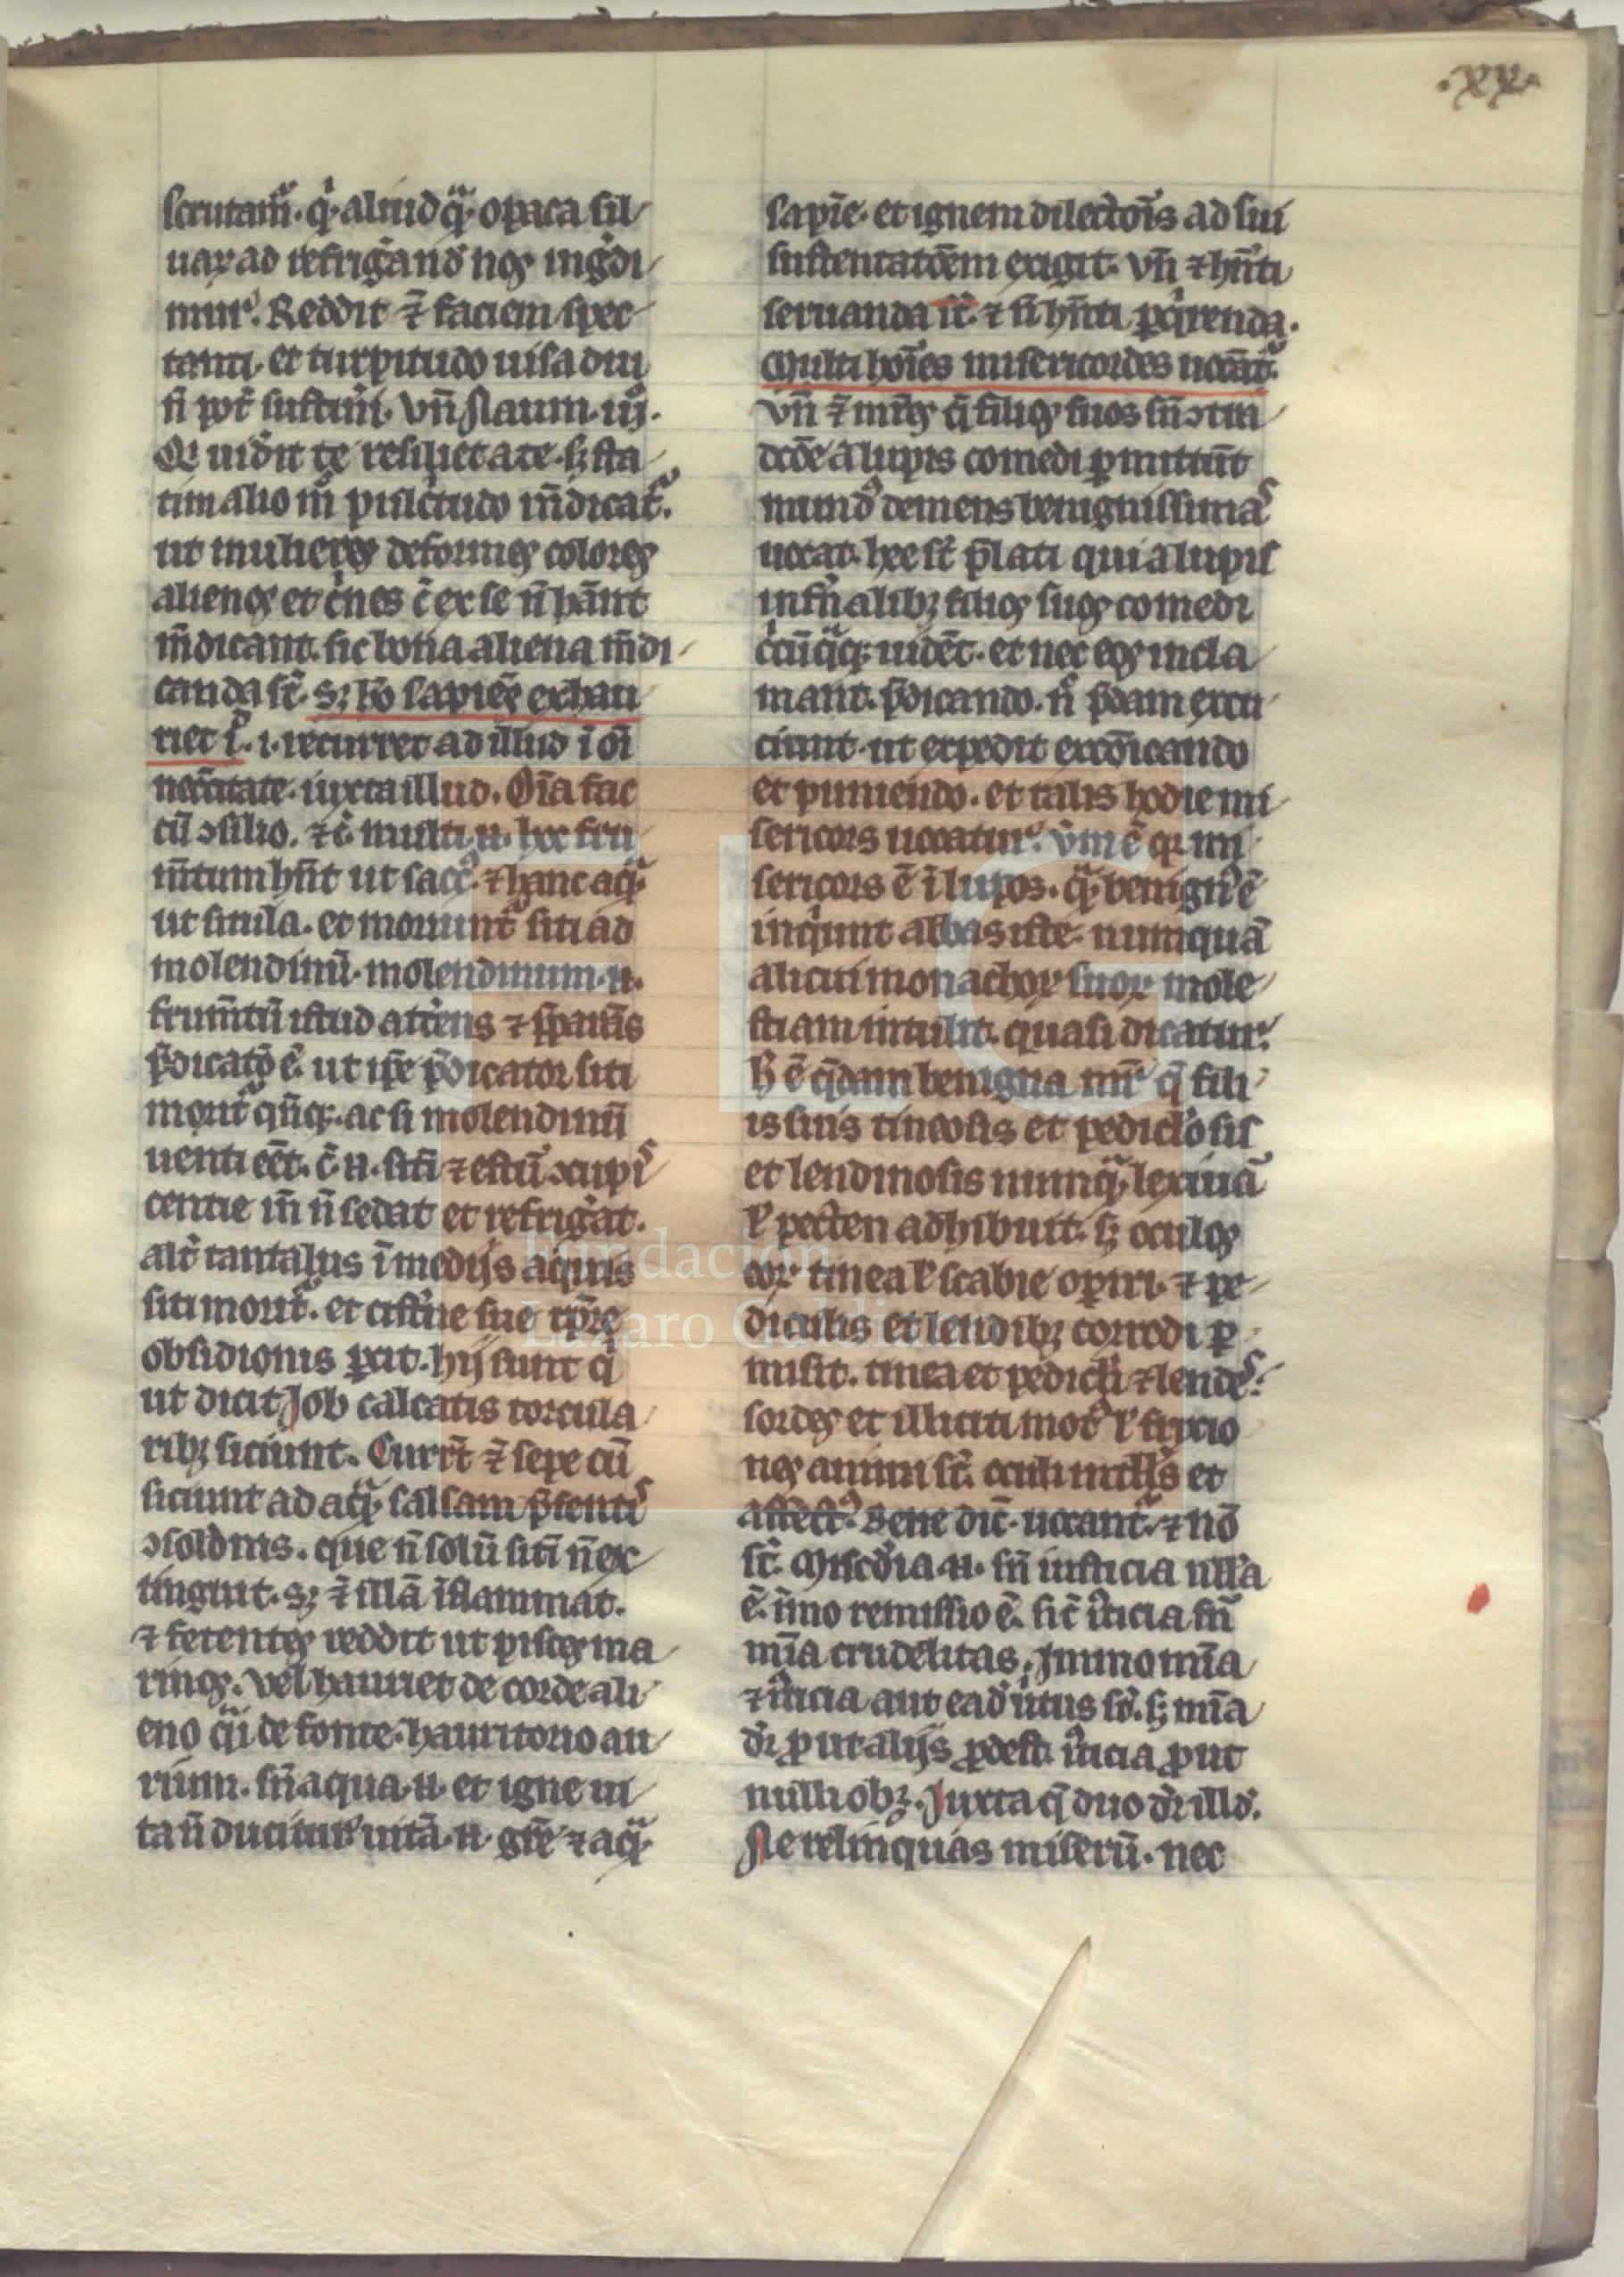 .xx.
scrutam̃. q̇. aliud q̃. opaca sil
uaꝝ ad refrigãnd nos ingdi
mur. Reddit ⁊̃ faciem spec
tanti. et turpitudo uisa diu
ñ pot̃ sustiñi. vñ
tim alio m̃ pulcitudo m̃dicat̃.
ut mulieres deformes colores
alienos et c̓nes ex se ñ hãnt
m̃dicant. sic bona aliena m̃di
canda sc̃. sꝫ exhau
riet ĩ. i. recurret ad illud ĩ oĩ
nec̃itate. iuxta illud. Oĩa fac
cũ ↄsilio. multi
m̃tum hñt ut sacc̓. ⁊ hanc aq̃.
ut situla. et moriunt̃ siti ad
molendinũ. molendinum .n.
frum̃tũ istud atterens
p̃dicatõ ẽ. ut ip̃e p̃dicator siti
morit̃ ac si molendinũ
uenti eẽt. sitĩ ⁊ estũ ↄcupi
centie ĩ ñ sedat et refrigãt.
alt̃ tantalus ĩ medijs aquis
siti morit̃. et cist̃ne sue tp̃re
obsidionis ꝑit. hij sunt q̇
ut dicit Job calcatis torcula
ribꝫ siciunt. Currt̃ ⁊̃ sepe cũ
siciunt ad aq̃. salsam p̃senti
ↄsoldnis. que ñ solũ sitĩ ñ ex
tinguit. sꝫ ⁊̃ illã ĩflammat.
⁊ fetentes reddit ut pisces ma
rinos. Vel hauriet de corde ali
eno q̃i de fonte. hauritorio au
rium. sñ aqua .n. et igne ui
ta ñ ducitur uitã .n. gr̃e ⁊ aq̃.
sapiẽ. et ignem dilectõis ad sui
sustentatõem exigit. vñ ⁊ hñti
seruanda sc̃. ⁊ ñ hñti ꝑq̇renda.
Multi hoĩes misericordes uocãt̃.
vñ ⁊̃ mr̃es q̇ filios suos sñ
comedi ꝑmittũt
mundꝰ demens benignissimas
uocat. hee st̃ p̃lati qui a lupis
infñalibꝫ filios suos comedi
uidẽt. et nec eos incla
mant. p̃dicando. ñ p̃dam excu
ciunt. ut expedit excõicando
et puniendo. et talis hodie mi
sericors uocatur. v̓m ẽ qꝫ mi
sericors ẽ ĩ lupos. q̃. benignꝰ ẽ
inq̇unt abbas iste. numquã
alicui monachoꝝ suoꝝ mole
stiam intulit. quasi dicatur.
ẽ q̃dam benigna mr̃ q̃ fili
is suis tineosis et pediclosis
et lendinosis numq̃. lexiuã
ł pecten adhibuit. sꝫ oculos
eoꝝ tinea ł scabie oꝑiri. ⁊ pe
diculis et lendibꝫ corrodi ꝑ
misit. tinea et pedicl̃i ⁊ lendes.
sordes et illiciti motꝰ ł fixio
nes animi st̃. oculi intll̃s et
affectꝰ. Bene dic̃. uocant̃. ⁊ nõ
st̃. Misc̃dia .n. sñ iusticia ull̃a
ẽ. ĩmo remissio ẽ. sic̃ iṽcia sñ
mĩa crudelitas. Immo mĩa
⁊ iṽcia aut ead̃ ũtus sc̃. sꝫ mĩa
dr̃ ꝓut alijs ꝓdest. iṽcia ꝓut
nulli obꝫ. Juxta q̃ duo dr̃ illd̃.
Ne relinquas miserũ. nec
Fundación
Lázaro Galdiano